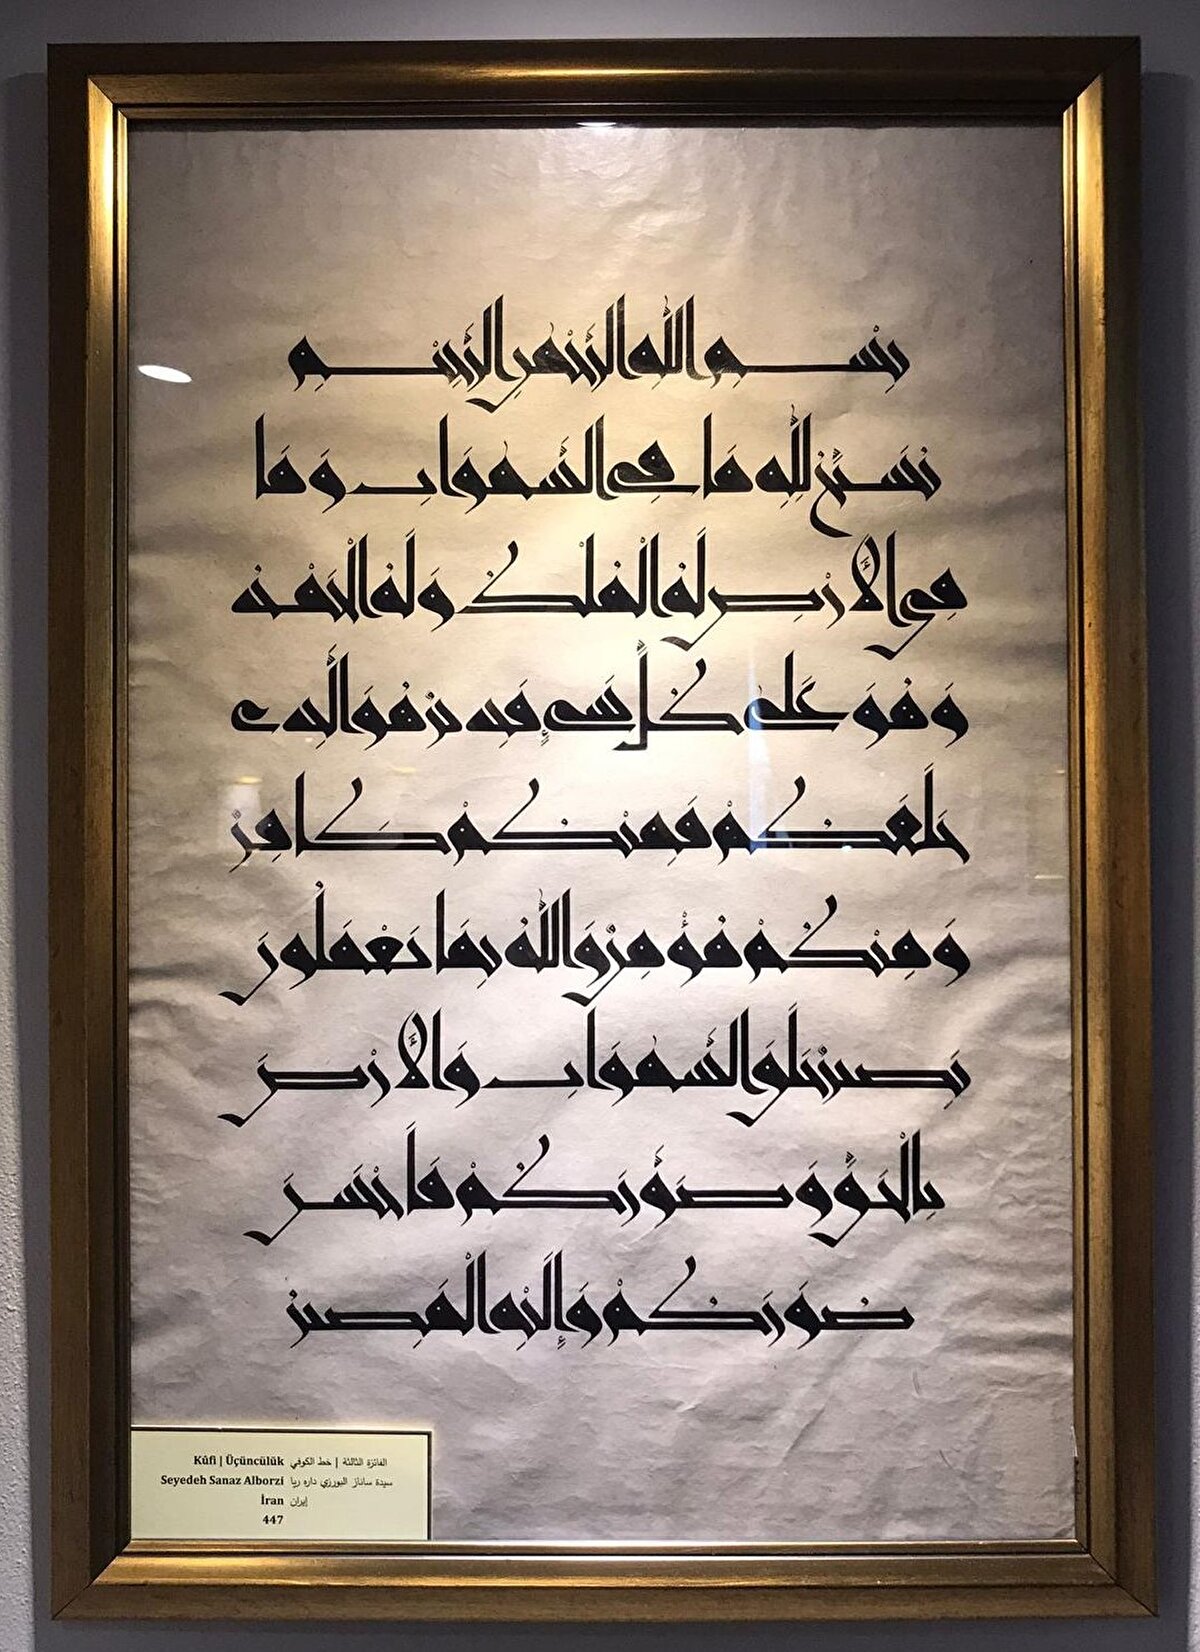 بِسْمِ اللّٰهِ الرَّحْمٰنِ الرَّحِيْمِ
يُسَبِّحُ لِلّٰهِ مَا فِي السَّمٰوَاتِ وَمَا
فِي الْأَرْضِ لَهُ الْمُلْكُ وَلَهُ الْحَمْدُ
وَهُوَ عَلٰى كُلِّ شَيْءٍ قَدِيرٌ هُوَ الَّذِي
خَلَقَكُمْ فَمِنْكُمْ كَافِرٌ
وَمِنْكُمْ مُؤْمِنٌ وَاللّٰهُ بِمَا تَعْمَلُونَ
بَصِيرٌ خَلَقَ السَّمٰوَاتِ وَالْأَرْضَ
بِالْحَقِّ وَصَوَّرَكُمْ فَأَحْسَنَ
صُوَرَكُمْ وَإِلَيْهِ الْمَصِيرُ
Kûfi | Üçüncülük الفائزة الثالثة | خط الكوفي
Seyedeh Sanaz Alborzi سيدة ساناز البورزي داره ريا
İran إيران
447